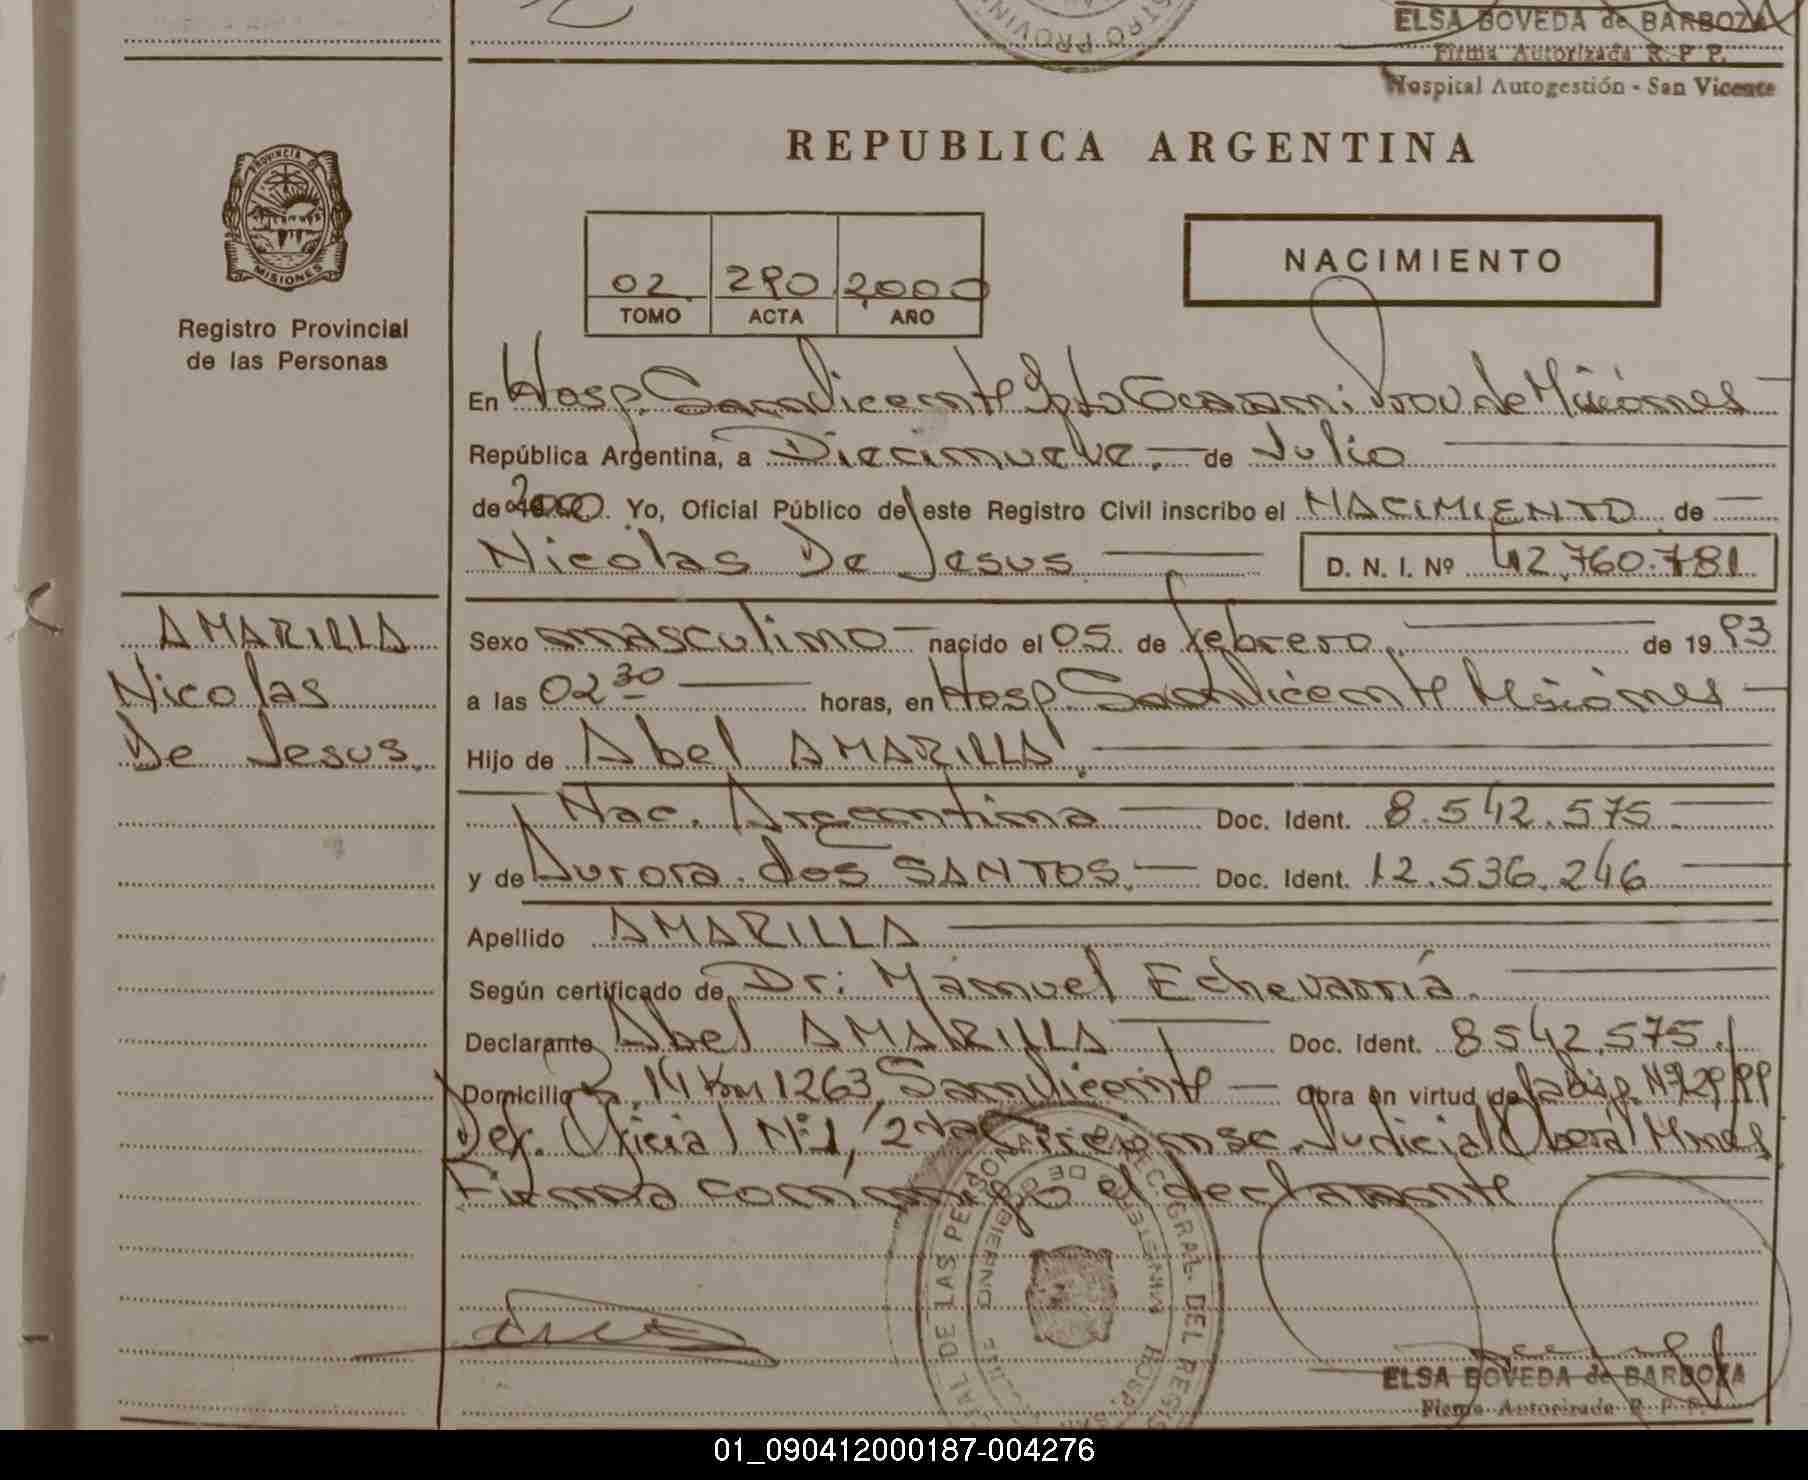 ELSA BOVEDA de BARBOZA
Firma Autorizada R. P. P.
Hospital Autogestión - San Vicente
PROVINCIA DE
MISIONES
Registro Provincial
de las Personas
REPUBLICA ARGENTINA
02 290 2000
TOMO ACTA AÑO
NACIMIENTO
En Hosp. San Vicente Dpto Guaraní Prov de Misiónes
República Argentina, a Diecinueve. de Julio
de 2000 Yo, Oficial Público de este Registro Civil inscribo el NACIMIENTO de
Nicolas De Jesus D. N. I. Nº 42.760.781
AMARILLA
Nicolas
De Jesus.
Sexo masculino nacido el 05 de febrero de 19 93
a las 02 30 horas, en Hosp. San Vicente Misiónes
Hijo de Abel AMARILLA
Nac. Argentina Doc. Ident. 8.542.575
y de Aurora dos SANTOS. Doc. Ident. 12.536.246
Apellido AMARILLA
Según certificado de Dr: Manuel Echevarría
Declarante Abel AMARILLA Doc. Ident. 8542.575.
Domicilio 14 Km 1263 San Vicente Obra en virtud de
Def. Oficial Nº1, 2da Judicial Oberá Mnes
Firma conmigo el declarante
ELSA BOVEDA de BARBOZA
Firma Autorizada R. P. P.
01_090412000187-004276